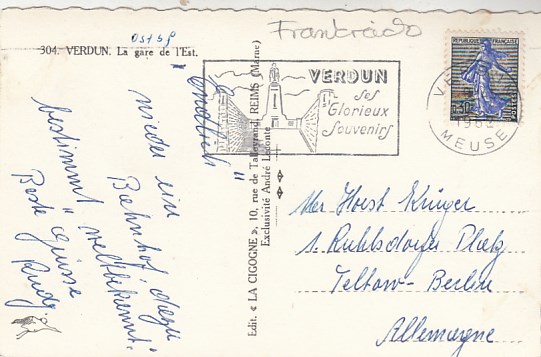 Frankreich
304. VERDUN. La gare de l'Est.
"Endlich"
wieder ein
Bahnhof, dazu
bestimmt "weltbekannt".
Beste Grüsse
Rudy
Edit. « LA CIGOGNE », 10, rue de Talleyrand, REIMS (Marne)
Exclusivité André Leconte
VERDUN
ses
Glorieux
Souvenirs
REPUBLIQUE FRANÇAISE
0,30
POSTES
MEUSE
Horst Krüger
1. Ruhlsdorfer Platz
Teltow-Berlin
Allemagne